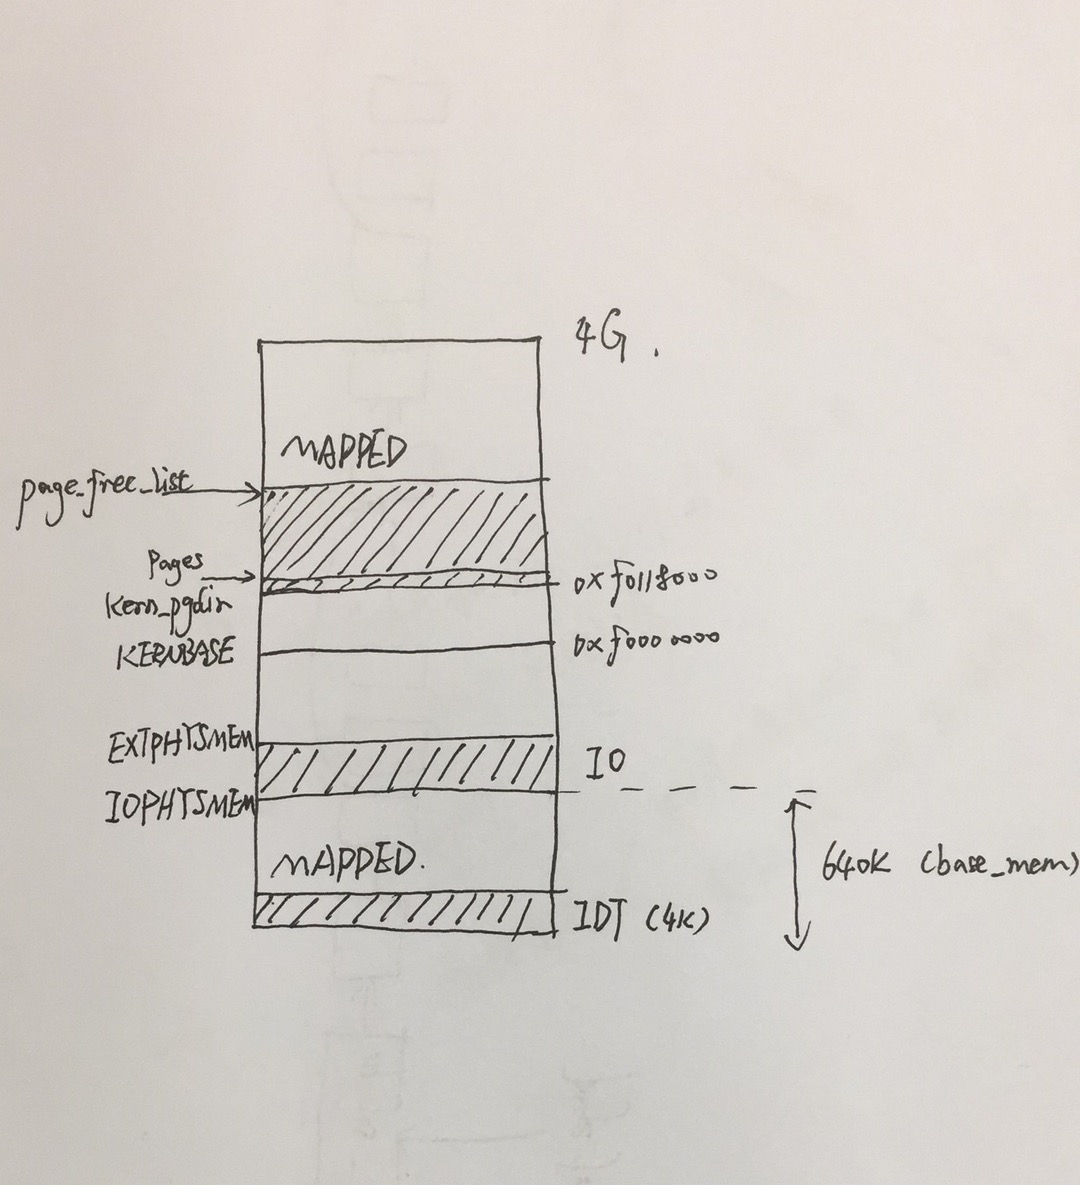 4G.
MAPPED
page_free_list
pages
0xf0118000
kern_pgdir
KERNBASE
0xf0000000
EXTPHYSMEM
IO
IOPHYSMEM
MAPPED.
640K (base_mem)
IDT (4K)